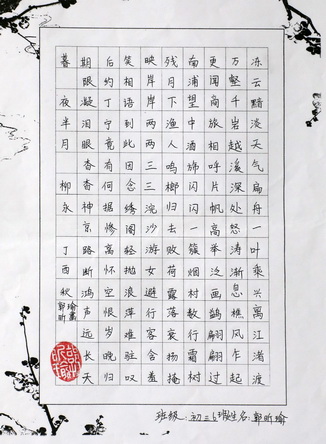 冻云黯淡天气扁舟一叶乘兴离江渚渡
万壑千岩越溪深处怒涛渐息樵风乍起
更闻商旅相呼片帆高举泛画鹢翩翩过
南浦望中酒旆闪闪一簇烟村数行霜树
残月下渔人鸣榔归去败荷露落衰扬掩
映岸岸两两三三浣沙游女避行客含羞
笑相语到此因念绣阁轻抛浪萍难驻叹
后约丁宁竟有何据惨离怀空恨岁晚归
期眼凝泪眼杳杳神京路断鸿声远长天
暮 夜半月 柳永 丁酉秋
郭昕瑜书
班级:初三5班 学生名:郭昕瑜